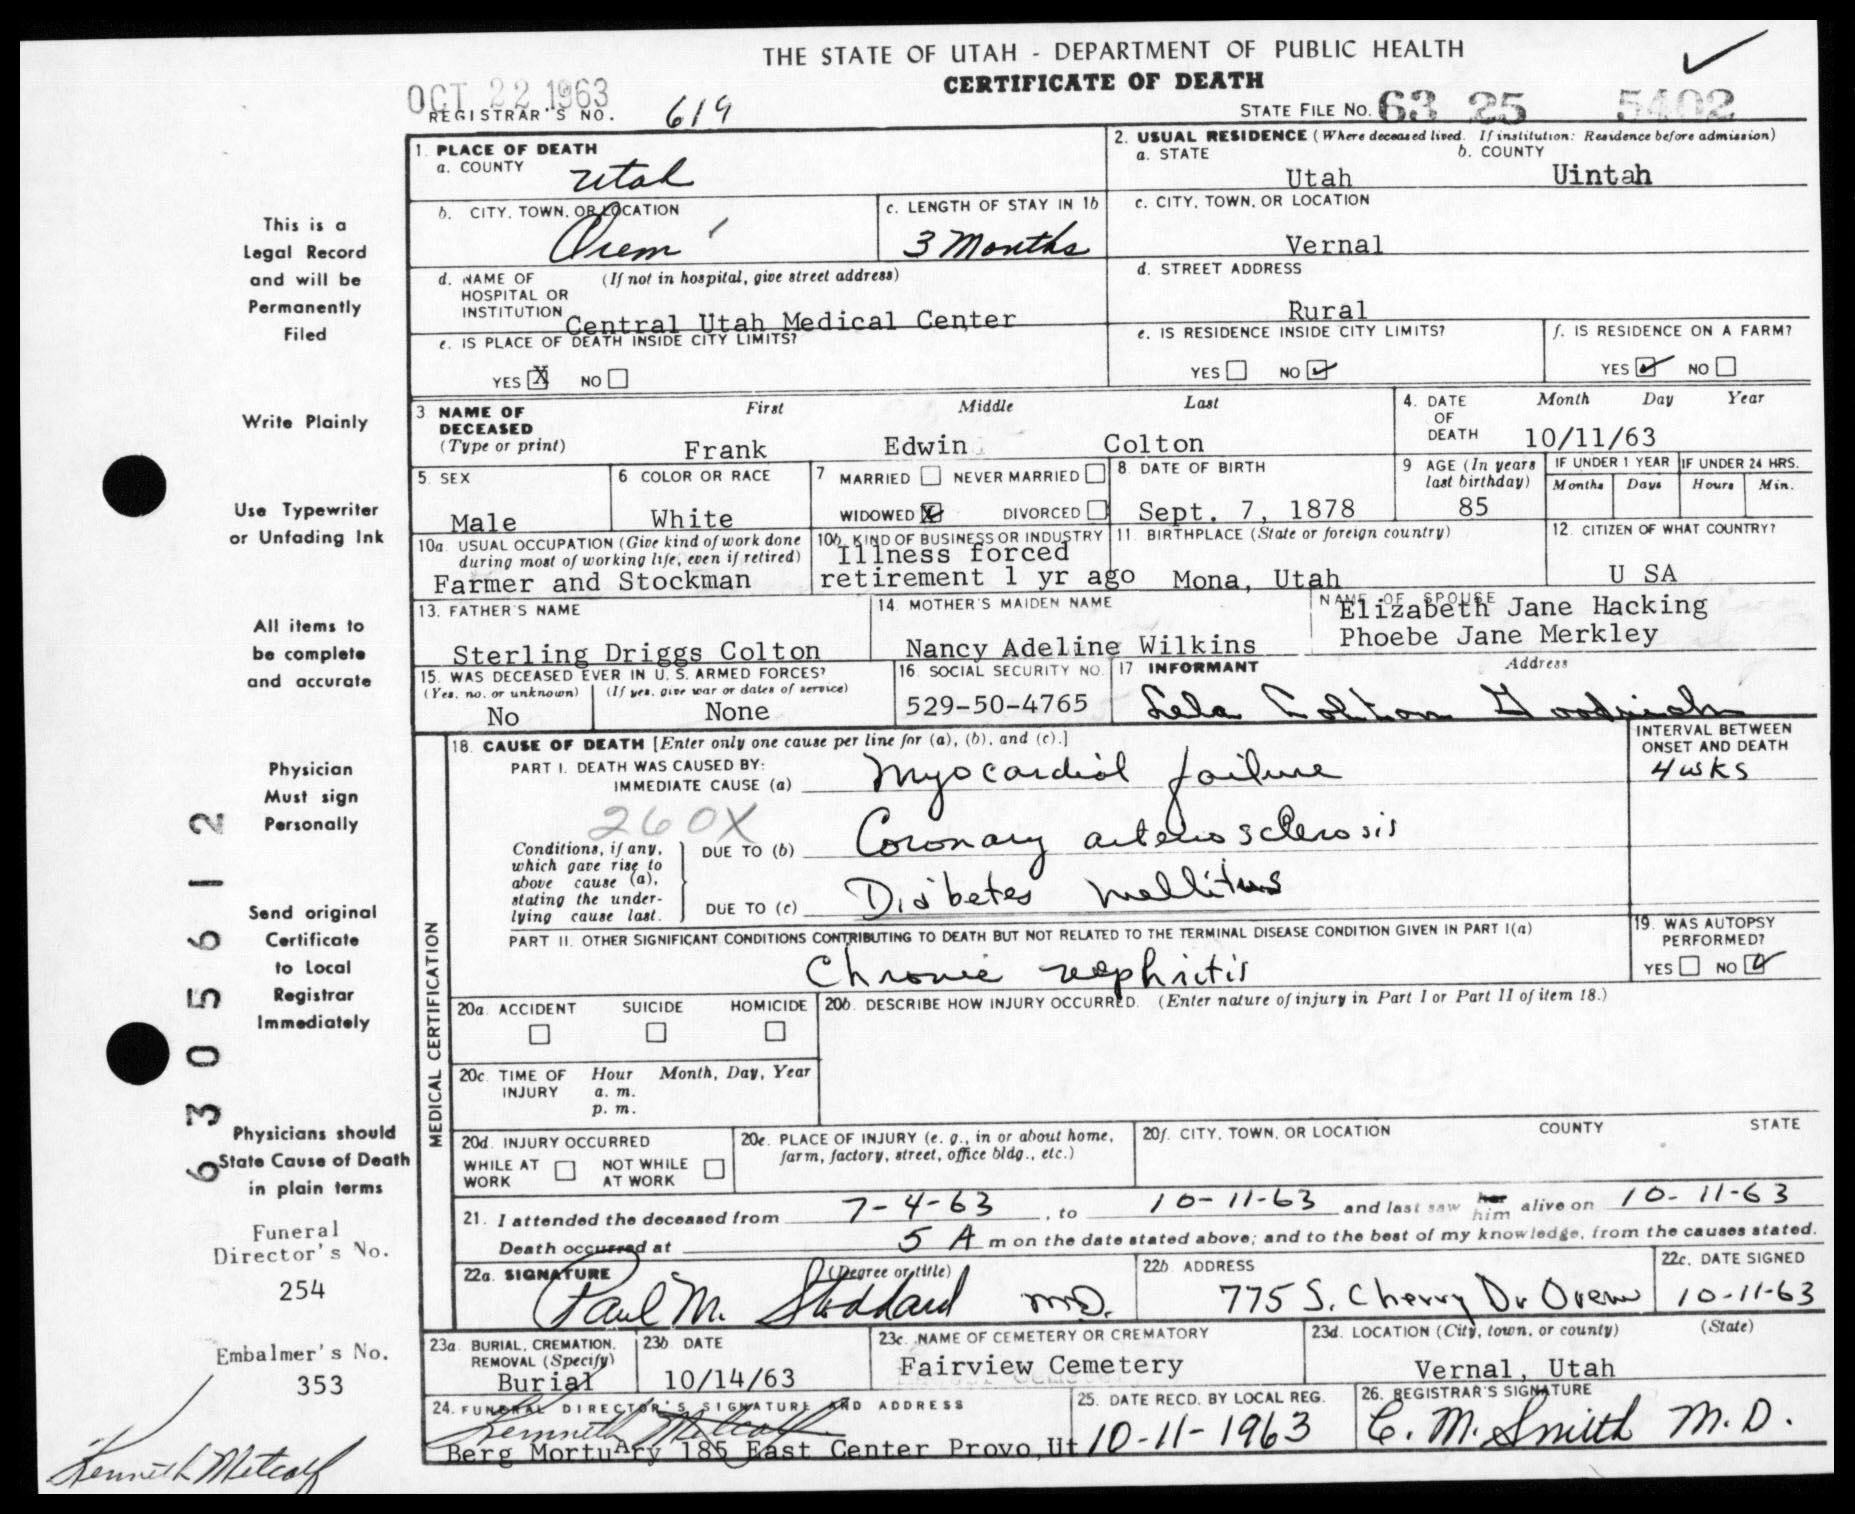 THE STATE OF UTAH - DEPARTMENT OF PUBLIC HEALTH
CERTIFICATE OF DEATH
OCT 22 1963
REGISTRAR'S NO. 619
STATE FILE NO. 63 25 5402
This is a
Legal Record
and will be
Permanently
Filed
Write Plainly
Use Typewriter
or Unfading Ink
All items to
be complete
and accurate
Physician
Must sign
Personally
Send original
Certificate
to Local
Registrar
Immediately
Physicians should
State Cause of Death
in plain terms
Funeral
Director's No.
254
Embalmer's No.
353
Kenneth Metcalf
630561 2
1. PLACE OF DEATH
a. COUNTY Utah
b. CITY, TOWN, OR LOCATION Orem
c. LENGTH OF STAY IN 1b 3 Months
d. NAME OF HOSPITAL OR INSTITUTION (If not in hospital, give street address)
Central Utah Medical Center
e. IS PLACE OF DEATH INSIDE CITY LIMITS?
YES X NO
2. USUAL RESIDENCE (Where deceased lived. If institution: Residence before admission)
a. STATE Utah b. COUNTY Uintah
c. CITY, TOWN, OR LOCATION
Vernal
d. STREET ADDRESS
Rural
e. IS RESIDENCE INSIDE CITY LIMITS?
YES NO ✓
f. IS RESIDENCE ON A FARM?
YES ✓ NO
3 NAME OF DECEASED (Type or print)
First Middle Last
Frank Edwin Colton
4. DATE OF DEATH Month Day Year
10/11/63
5. SEX
Male
6 COLOR OR RACE
White
7 MARRIED NEVER MARRIED
WIDOWED X DIVORCED
8. DATE OF BIRTH
Sept. 7, 1878
9 AGE (In years last birthday)
85
IF UNDER 1 YEAR IF UNDER 24 HRS.
Months Days Hours Min.
10a. USUAL OCCUPATION (Give kind of work done during most of working life, even if retired)
Farmer and Stockman
10b. KIND OF BUSINESS OR INDUSTRY
Illness forced
retirement 1 yr ago
11. BIRTHPLACE (State or foreign country)
Mona, Utah
12. CITIZEN OF WHAT COUNTRY?
U SA
13. FATHER'S NAME
Sterling Driggs Colton
14. MOTHER'S MAIDEN NAME
Nancy Adeline Wilkins
NAME OF SPOUSE
Elizabeth Jane Hacking
Phoebe Jane Merkley
15. WAS DECEASED EVER IN U. S. ARMED FORCES?
(Yes, no, or unknown) (If yes, give war or dates of service)
No None
16. SOCIAL SECURITY NO.
529-50-4765
17 INFORMANT Address
Lela Colton Goodrich
MEDICAL CERTIFICATION
18. CAUSE OF DEATH [Enter only one cause per line for (a), (b), and (c).]
INTERVAL BETWEEN ONSET AND DEATH
PART I. DEATH WAS CAUSED BY:
IMMEDIATE CAUSE (a) Myocardial failure 4 wks
260X
Conditions, if any, which gave rise to above cause (a), stating the underlying cause last.
DUE TO (b) Coronary arteriosclerosis
DUE TO (c) Diabetes mellitus
PART II. OTHER SIGNIFICANT CONDITIONS CONTRIBUTING TO DEATH BUT NOT RELATED TO THE TERMINAL DISEASE CONDITION GIVEN IN PART I(a)
Chronic nephritis
19. WAS AUTOPSY PERFORMED?
YES NO ✓
20a. ACCIDENT SUICIDE HOMICIDE
20b. DESCRIBE HOW INJURY OCCURRED. (Enter nature of injury in Part I or Part II of item 18.)
20c. TIME OF INJURY Hour a. m. p. m. Month, Day, Year
20d. INJURY OCCURRED
WHILE AT WORK NOT WHILE AT WORK
20e. PLACE OF INJURY (e. g., in or about home, farm, factory, street, office bldg., etc.)
20f. CITY, TOWN, OR LOCATION COUNTY STATE
21. I attended the deceased from 7-4-63, to 10-11-63 and last saw her him alive on 10-11-63
Death occurred at 5 A m on the date stated above; and to the best of my knowledge, from the causes stated.
22a. SIGNATURE (Degree or title)
Paul M. Stoddard MD.
22b. ADDRESS
775 S. Cherry Dr Orem
22c. DATE SIGNED
10-11-63
23a. BURIAL, CREMATION, REMOVAL (Specify)
Burial
23b DATE
10/14/63
23c. NAME OF CEMETERY OR CREMATORY
Fairview Cemetery
23d. LOCATION (City, town, or county) (State)
Vernal, Utah
24. FUNERAL DIRECTOR'S SIGNATURE AND ADDRESS
Kenneth Metcalf
Berg Mortuary 185 East Center Provo,Ut
25. DATE RECD. BY LOCAL REG.
10-11-1963
26. REGISTRAR'S SIGNATURE
C. M. Smith M.D.